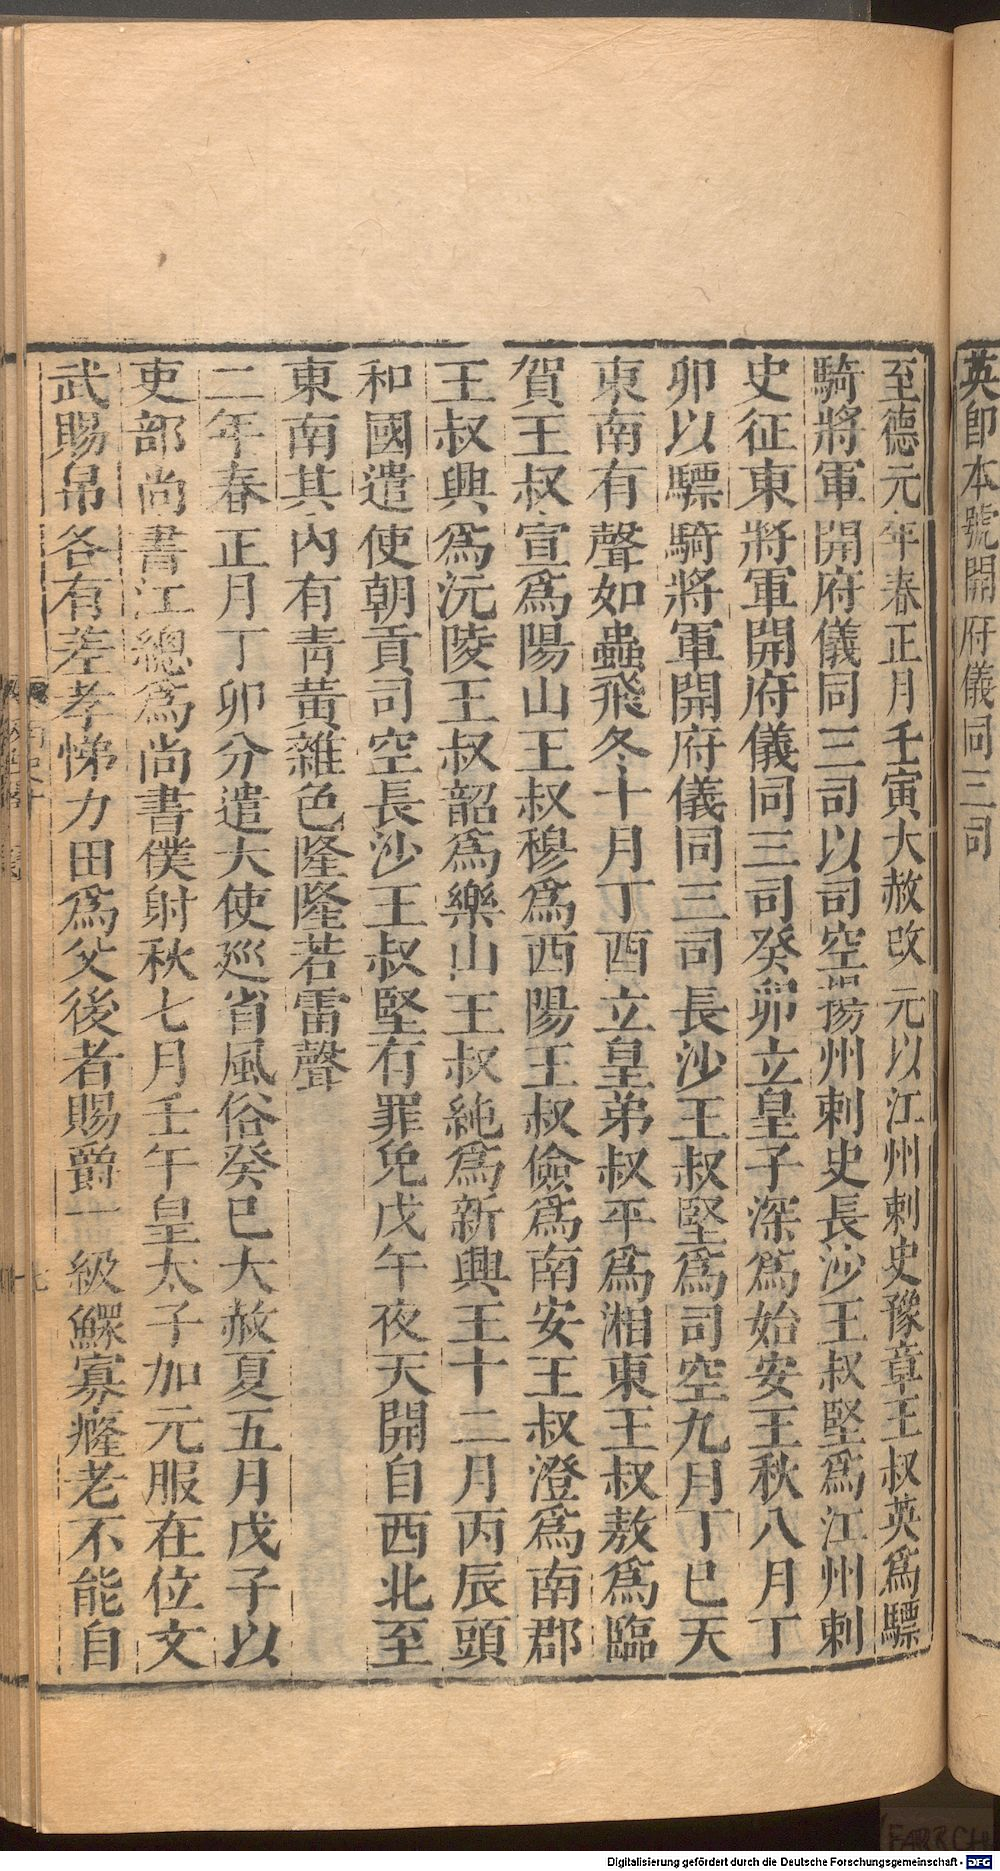 英即本號開府儀同三司
至德元年春正月壬寅大赦改元以江州刺史豫章王叔英爲驃
騎將軍開府儀同三司以司空揚州刺史長沙王叔堅爲江州刺
史征東將軍開府儀同三司癸卯立皇子深爲始安王秋八月丁
卯以驃騎將軍開府儀同三司長沙王叔堅爲司空九月丁巳天
東南有聲如蟲飛冬十月丁酉立皇弟叔平爲湘東王叔敖爲臨
賀王叔宣爲陽山王叔穆爲西陽王叔儉爲南安王叔澄爲南郡
王叔興爲沅陵王叔韶爲樂山王叔純爲新興王十二月丙辰頭
和國遣使朝貢司空長沙王叔堅有罪免戊午夜天開自西北至
東南其內有青黃雜色隆隆若雷聲
二年春正月丁卯分遣大使巡省風俗癸巳大赦夏五月戊子以
吏部尚書江總爲尚書僕射秋七月壬午皇太子加元服在位文
武賜帛各有差孝悌力田爲父後者賜爵一級鰥寡癃老不能自
Digitalisierung gefördert durch die Deutsche Forschungsgemeinschaft - DFG